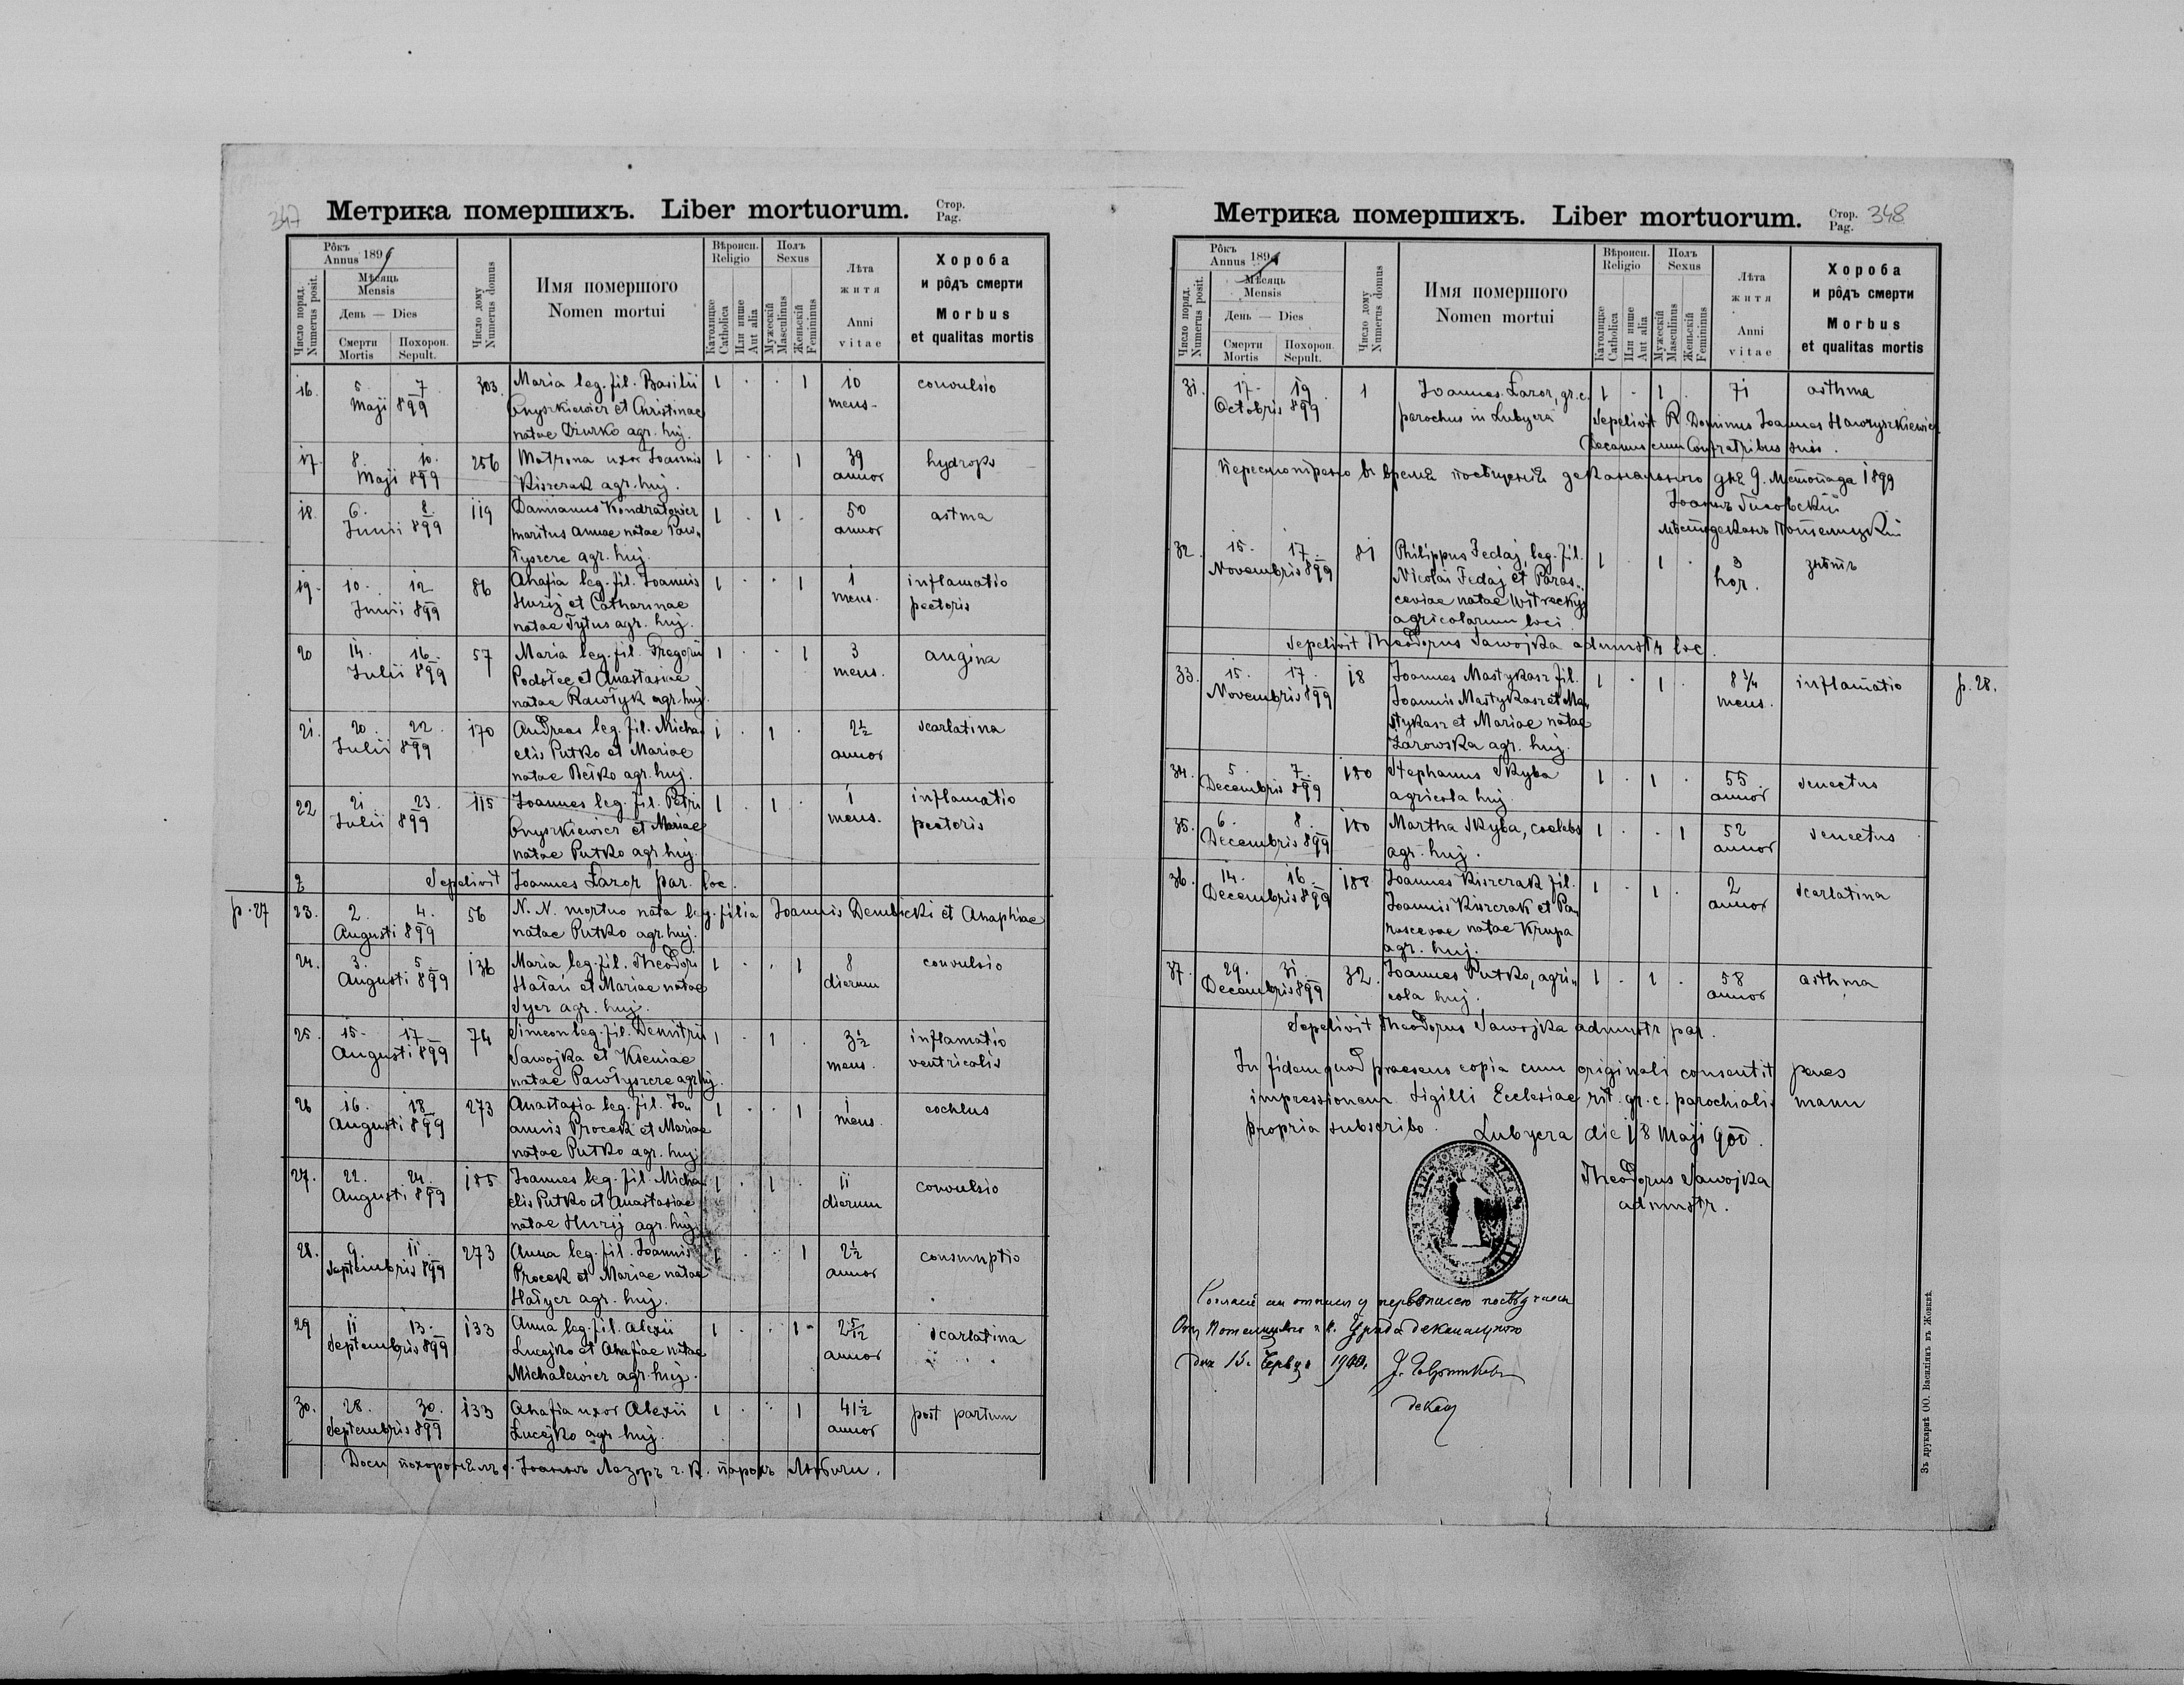 347
Метрика помершихъ. Liber mortuorum.
Стор.
Pag.
Рôкъ
Annus 1899
Мѣсяць
Mensis
День — Dies
Число поряд.
Numerus posit.
Смерти
Mortis
Похорон.
Sepult.
Число дому
Numerus domus
Имя помершого
Nomen mortui
Вѣроисп.
Religio
Католицке
Catholica
Или инше
Aut alia
Полъ
Sexus
Мужескій
Masculinus
Женьскій
Femininus
Лѣта
житя
Anni
vitae
Хороба
и рôдъ смерти
Morbus
et qualitas mortis
16. 5. 7. 303. Maria leg. fil. Basilii 1 . . 1 10 convulsio
Maji 899 Onyszkiewicz et Christinae mens.
natae Dziurko agr. huj.
17. 8. 10. 256 Matrona uxor Joannis 1 . . 1 39 hydrops
Maji 899 Kiszczak agr. huj. annor
18. 6. 8. 119 Damianus Kondratowicz 1 . 1 . 50 astma
Junii 899 maritus Annae natae Paw„ annor
łyszcze agr. huj.
19. 10. 12 86 Ahafia leg. fil. Joannis 1 . . 1 1 inflamatio
Junii 899 Huzij et Catharinae mens. pectoris
natae Tytus agr. huj.
20 14. 16. 57 Maria leg. fil. Gregorii 1 . . 1 3 angina
Julii 899 Podołec et Anastasiae mens.
natae Rawłyk agr. huj.
21. 20. 22. 170 Andreas leg. fil. Micha„ 1 . 1 . 2½ scarlatina
Julii 899 elis Putko et Mariae annor
natae Beśko agr. huj.
22 21. 23. 115 Joannes leg. fil. Petri 1 . 1 . 1 inflamatio
Julii 899 Onyszkiewicz et Mariae mens. pectoris
natae Putko agr. huj.
Sepelivit Joannes Łazor par. loc.
p. 27 23. 2. 4. 56 N. N. mortuo nata leg. filia Joannis Dembicki et Anaphiae
Augusti 899 natae Putko agr. huj.
24. 3. 5. 136 Maria leg. fil. Theodori 1 . . 1 8 convulsio
Augusti 899 Hałań et Mariae natae dierum
Syer agr. huj.
25. 15. 17. 74 Simeon leg. fil. Demitrii 1 . 1 . 3½ inflamatio
Augusti 899 Sawojka et Kseniae mens. ventricalis
natae Pawłyszcze agr. huj.
26 16. 18. 273 Anastasia leg. fil. Jo„ 1 . . 1 1 cochlus
Augusti 899 annis Procek et Mariae mens.
natae Putko agr. huj.
27. 22. 24. 185 Joannes leg. fil. Micha„ 1 . 1 . 11 convulsio
Augusti 899 elis Putko et Anastasiae dierum
natae Hurij agr. huj.
28. 9. 11. 273 Anna leg. fil. Joannis 1 . . 1 2½ consumptio
Septembris 899 Procek et Mariae natae annor
Hałycz agr. huj.
29 11 13. 133 Anna leg. fil. Alexii 1 . . 1 2 5/12 scarlatina
Septembris 899 Lucejko et Ahafiae natae annor
Michalewicz agr. huj.
30. 28. 30. 133 Ahafia uxor Alexii 1 . . 1 41½ post partum
Septembris 899 Lucejko agr. huj. annor
Доси похоронилъ о. Іоаннъ Лазоръ г. к. парохъ Любичи.
Метрика помершихъ. Liber mortuorum.
Стор.
Pag.
348
Рôкъ
Annus 1899
Мѣсяць
Mensis
День — Dies
Число поряд.
Numerus posit.
Смерти
Mortis
Похорон.
Sepult.
Число дому
Numerus domus
Имя помершого
Nomen mortui
Вѣроисп.
Religio
Католицке
Catholica
Или инше
Aut alia
Полъ
Sexus
Мужескій
Masculinus
Женьскій
Femininus
Лѣта
житя
Anni
vitae
Хороба
и рôдъ смерти
Morbus
et qualitas mortis
31. 17. 19. 1 Joannes Łazor, gr. c. 1 . 1 . 71 asthma
Octobris 899 parochus in Lubycza Sepelivit R. Dominus Joannes Hawryszkiewicz
Decanus cum Confratribus suis.
Пересмотрено въ время посѣщенія деканального дня 9. Листопада 1899
Іоаннъ
мѣстодеканъ Потелицкій
32. 15. 17. 81 Philippus Fedaj, leg. fil. 1 . 1 . 3
Novembris 899 Nicolai Fedaj et Paras„ hor.
ceviae natae Witreckyj
agricolarum loci
Sepelivit Theodorus Sawojka adminstr loc.
33. 15. 17. 18 Joannes Mastykasz fil. 1 . 1 . 8 ¾ inflamatio p. 28.
Novembris 899 Joannis Mastykasz et Ma„ mens.
stykasz et Mariae natae
Żarowska agr. huj.
34. 5. 7. 180 Stephanus Skyba 1 . 1 . 55 senectus
Decembris 899 agricola huj. annor
35. 6. 8. 180 Martha Skyba, coelebs 1 . . 1 52 senectus
Decembris 899 agr. huj. annor
36. 14. 16. 188 Joannes Kiszczak fil. 1 . 1 . 2 scarlatina
Decembris 899 Joannis Kiszczak et Pa„ annor
rascevae natae Krupa
agr. huj.
37. 29. 31. 32. Joannes Putko, agri„ 1 . 1 . 58 asthma
Decembris 899 cola huj. annor
Sepelivit Theodorus Sawojka adminstr par.
In fidem quod praesens copia cum originali consentit penes
impressionem Sigilli Ecclesiae rit. gr. c. parochialis manu
propria subscribo. Lubycza die 18 Maji 900.
Theodorus Sawojka
adminstr.
дня 15. Червця 1900.
декан
Зъ друкарнѣ ОО. Василіянъ въ Жовквѣ.